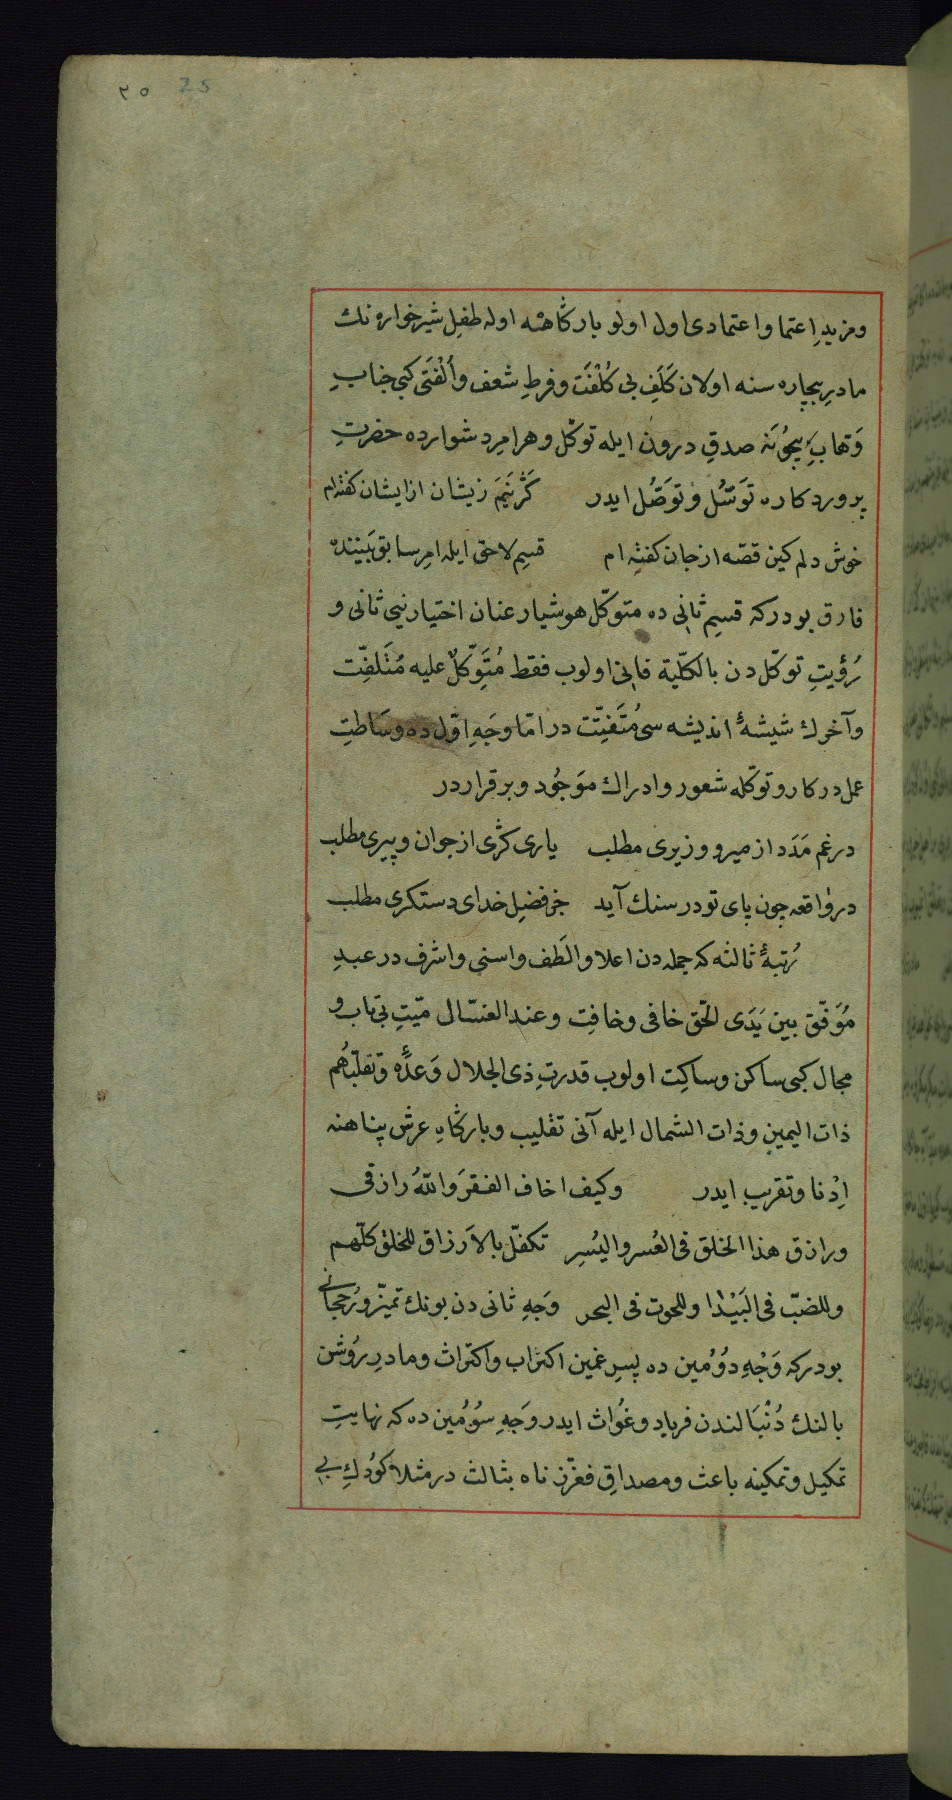 ٢٥ 25
ومزيدِ اعتما واعتمادى اول اولو باركاهنه اوله طفلِ شيرخواره نك
مادرِ بيچاره سنه اولان كَلَفِ بى كُلْفَت وفرطِ شعف وأُلْفَتى كبى جنابِ
وَهّابِ بيچُونَه صدقِ درون ايله توكّل وهر امرِ دشوارده حضرتِ
پروردكاره تَوَسُّل وتَوَصُّل ايدر كر نيَم زيشان ازايشان كفته ام
خوش دلم كين قصّه از جان كفته ام قسمِ لاحق ايله امرِ سابق بَيننده
فارق بودركه قسمِ ثانى ده متوكّل هوشيار عنان اختيارنى ثانى و
رُؤيتِ توكّل دن بالكلّية فانى اولوب فقط مُتَوَكّلٌ عليه مُتَلفِّت
وآخرك شيشهٔ انديشه سى مُتَفتِّت در امّا وَجَهِ اوّل ده وسَاطتِ
عمل دركار وتوكّله شعور وادراك موَجُود وبرقراردر
درغم مَدَد از مير و وزيرى مطلب يارى كرى از جوان وپيرى مطلب
در واقعه چون پاى تو در سنك آيد جز فضلِ خداى دستكرى مطلب
رُتبهٔ ثالثه كه جمله دن اعلا والَطف واسنى واشرف در عبدِ
مُوَفّق بين يَدَى الحّق خافى وخافِت وعند الغسّال ميّتِ بى تاب و
مجال كبى ساكن وساكِت اولوب قدرتِ ذى الجلال وَعدَّه وتقلّبُهم
ذات اليمين وذات الشمال ايله آنى تقليب وباركاهِ عرش پناهنه
اِدْنا وتقريب ايدر وكيف اخاف الفقرَ واللهُ رازقى
ورازق هذا الخلق فى العُسر واليُسرِ تكفّل بالاَرزاق للخلق كلّهم
وللضبّ فى البَيْدا وللحوت فى البحر وَجهِ ثانى دن بونك تميّز ورُجحانى
بودركه وَجْهِ دوُمين ده پسرِ غمين اكتراب واكتراث ومادرِ رُوشن
بالنك دُنْبَالندن فرياد وغُواث ايدر وَجهِ سوُمين ده كه نهايتِ
تمكيل وتمكينه باعث ومصداقِ فعزّزناه بثالث در مثلاً كوُدكِ بى